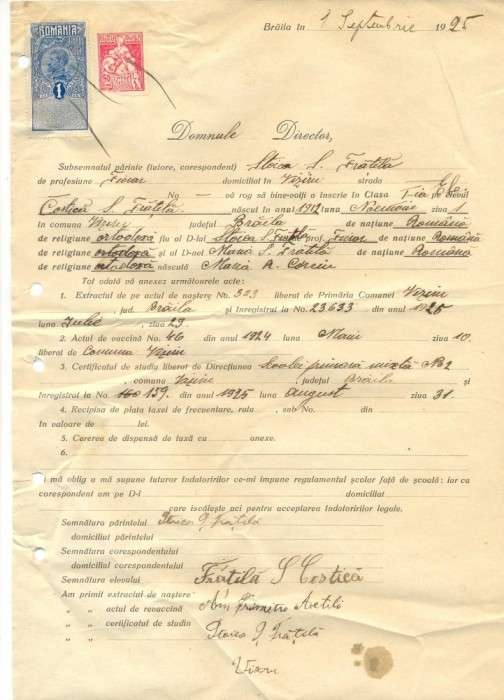 ROMANIA
1
Brăila în 1 Septembrie 1925
Domnule Director,
Subsemnatul părinte (tutore, corespondent) Stoica S. Frătilă
de profesiune Fierar domiciliat în Viziru strada
No — vă rog să bine-voiți a înscrie în Clasa I-a pe elevul
Costică S. Frătilă născut în anul 1912 luna Noembrie ziua 1
în comuna Viziru județul Brăila de națiune Română
de religiune ortodoxă fiu al D-lui Stoica S. Frătilă prof. Fierar de națiune Română
de religiune ortodoxă și al D-nei Maria S. Frătilă de națiune Română
de religiune ortodoxă născută Maria A.
Tot odată vă anexez următoarele acte:
1. Extractul de pe actul de naștere No. 303 liberat de Primăria Comunei Viziru
, jud. Brăila și înregistrat la No. 23633 din anul 1925
luna Iulie, ziua 23.
2. Actul de vaccină No. 46 din anul 1924 luna Maiu ziua 10.
liberat de Comuna Viziru
3. Certificatul de studiu liberat de Direcțiunea Școalei primară mixtă No 2
, comuna Viziru, județul Brăila și
înregistrat la No 159. din anul 1925 luna August ziua 31.
4. Recipisa de plata taxei de frecuentare, rata , sub No. din
în valoare de lei.
5. Cererea de dispensă de taxă cu anexe.
6.
și mă oblig a mă supune tuturor îndatoririlor ce-mi impune regulamentul școlar față de școală: iar ca
corespondent am pe D-l domiciliat
care iscălește aci pentru acceptarea îndatoririlor legale.
Semnătura părintelui Stoica S. Frătilă
domiciliul părintelui
Semnătura corespondentului
domiciliul corespondentului
Semnătura elevului Frătilă S Costică
Am primit extractul de naștere
„ „ actul de revaccină
„ „ certificatul de studiu Stoica S. Frătilă
Viziru